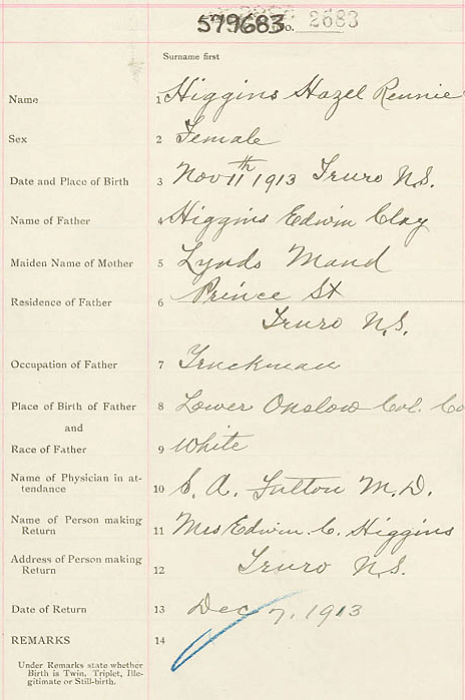 579683 No. 2683
Surname first
Name 1 Higgins Hazel Rennie
Sex 2 Female
Date and Place of Birth 3 Nov 11th 1913 Truro N.S.
Name of Father 4 Higgins Edwin Clay
Maiden Name of Mother 5 Lynds Maud
Residence of Father 6 Prince St
Truro N.S.
Occupation of Father 7 Truckman
Place of Birth of Father 8 Lower Onslow Col. Co
and
Race of Father 9 White
Name of Physician in at-
tendance 10 S. A. Fulton M.D.
Name of Person making
Return 11 Mrs Edwin C. Higgins
Address of Person making
Return 12 Truro N.S.
Date of Return 13 Dec 7, 1913
REMARKS 14
Under Remarks state whether
Birth is Twin, Triplet, Ille-
gitimate or Still-birth.